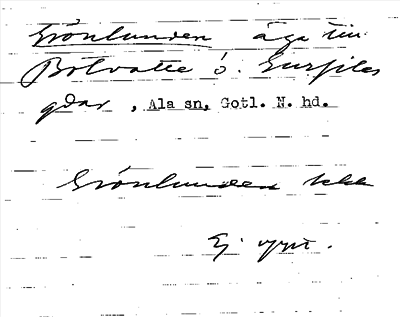 Grönlunden äga till
Botvatte o. Gurfiles
gdar, Ala sn, Gotl. N. hd.
Grönlunden
Ej uppt.